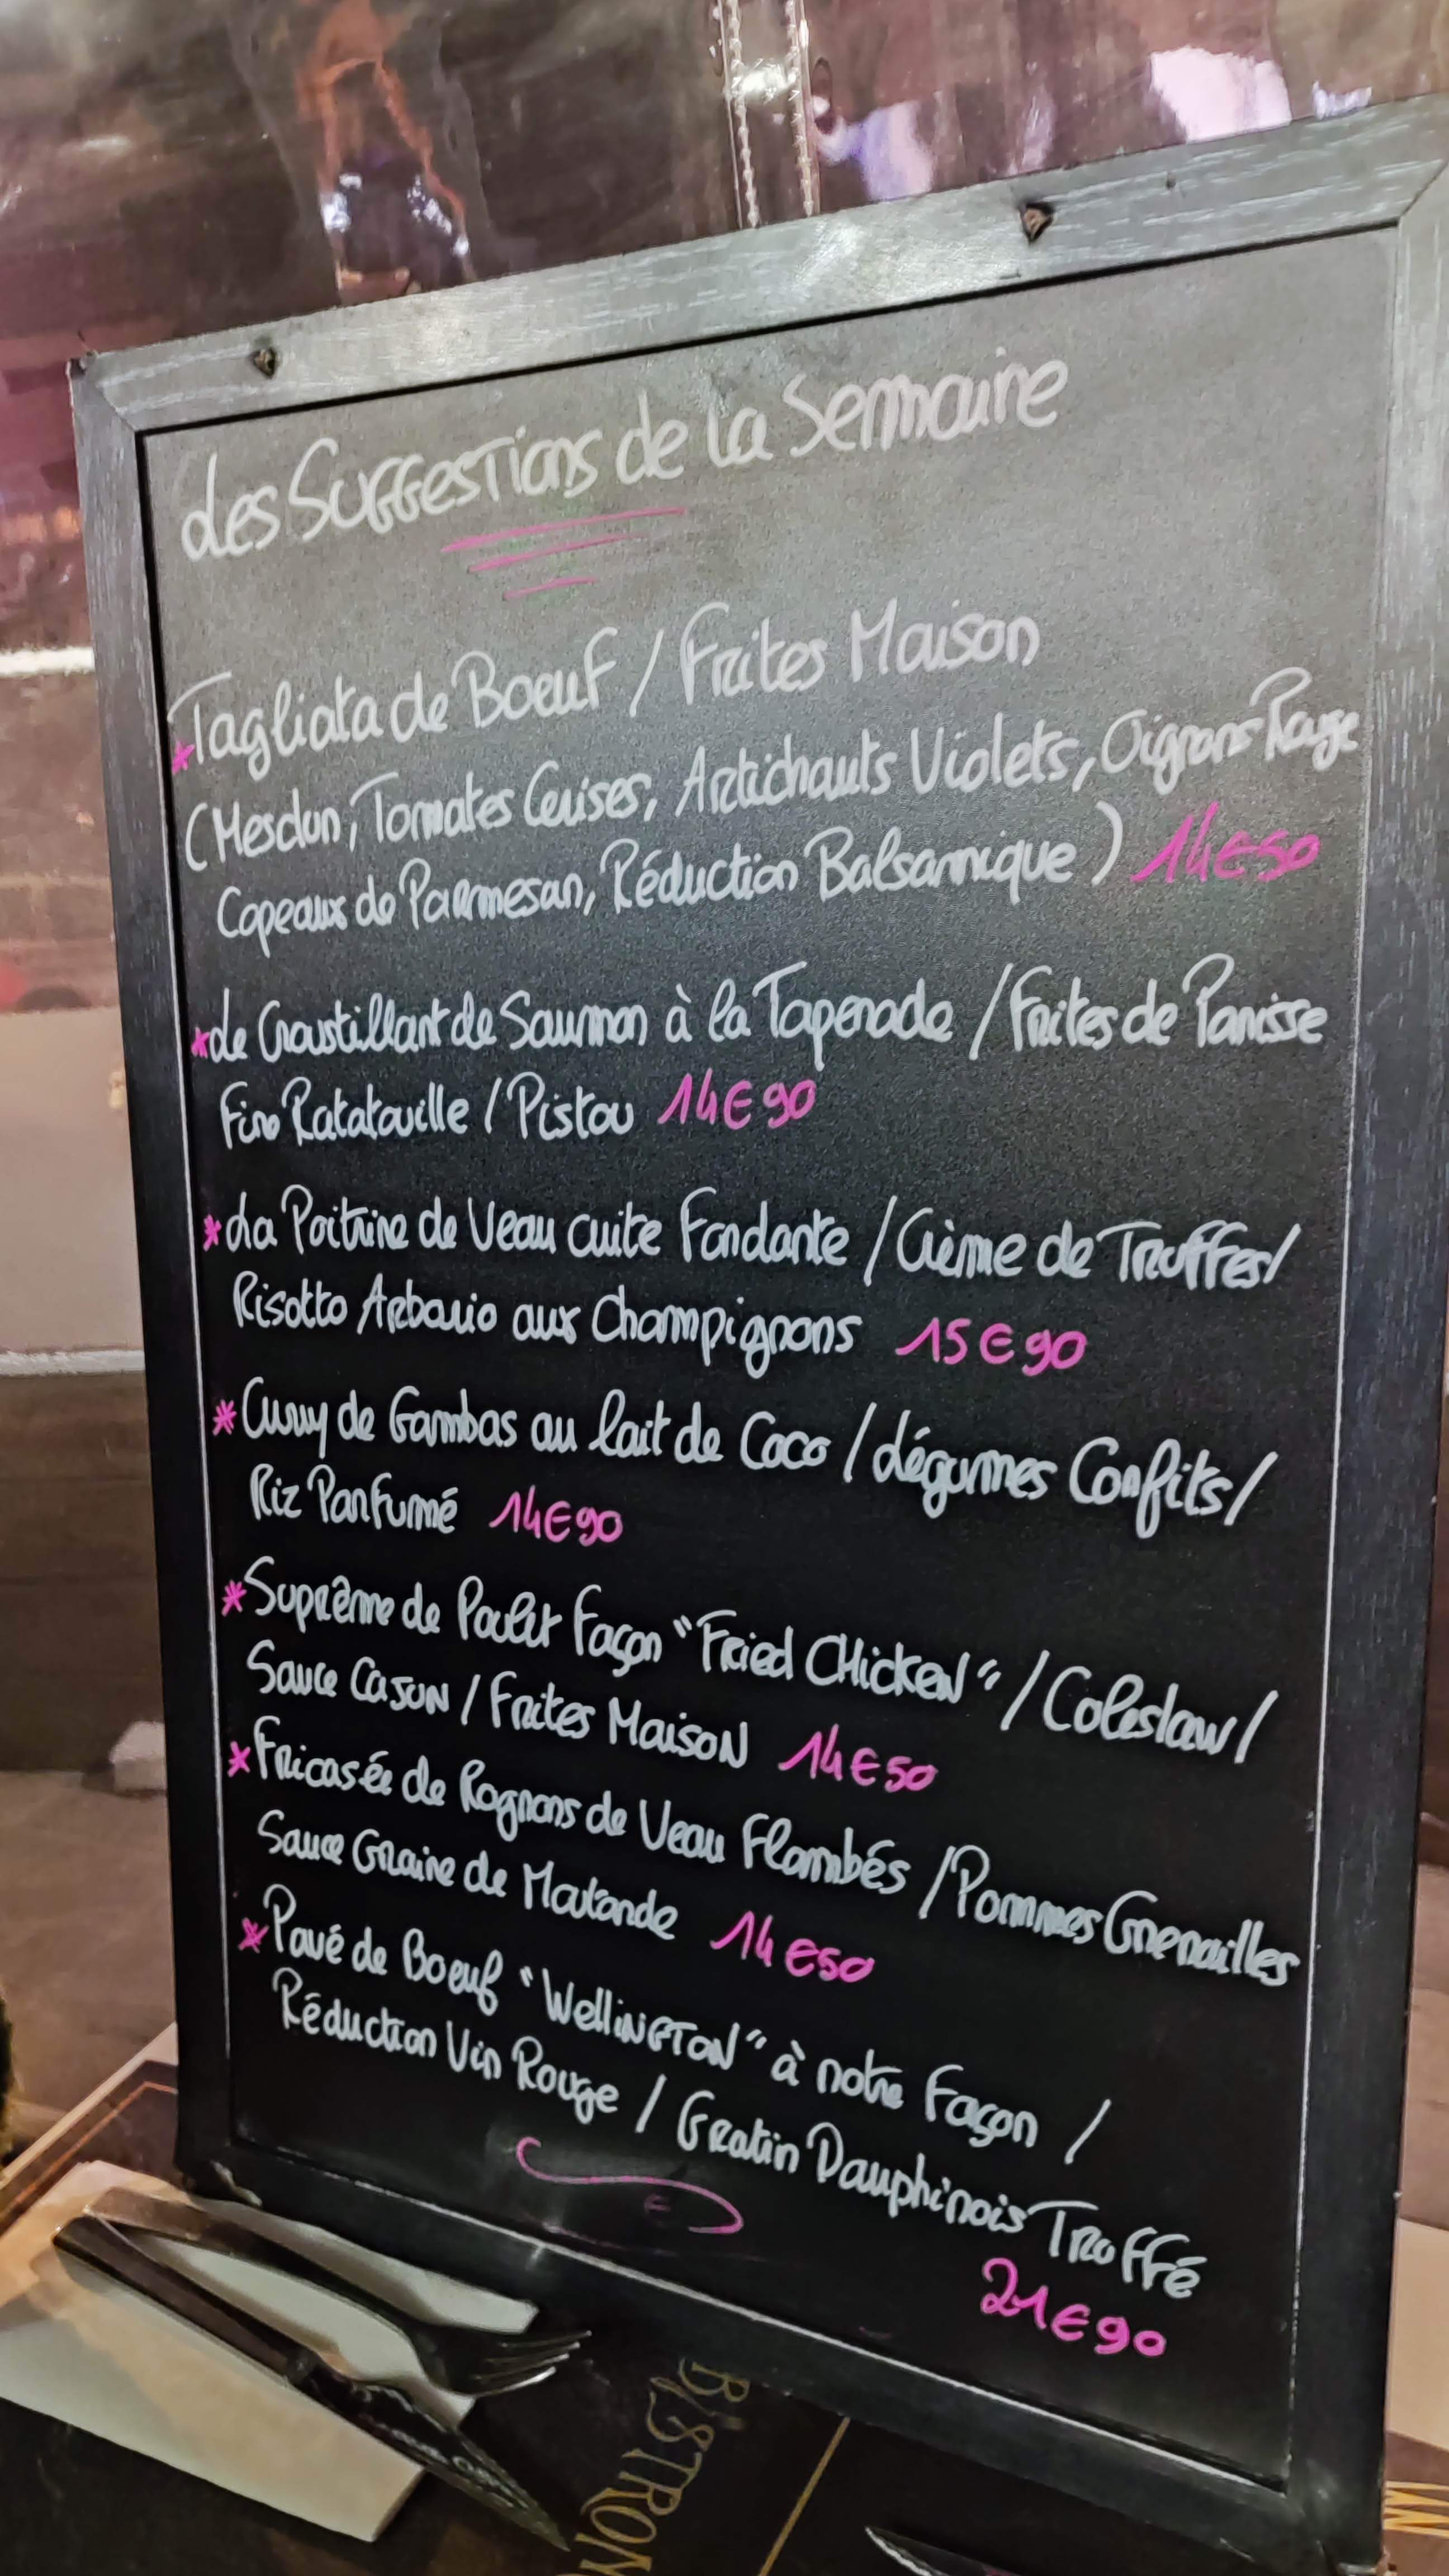 Les Suggestions de la Semaine
*Tagliata de Boeuf / Frites Maison
(Mesclun, Tomates Cerises, Artichauts Violets, Oignons Rouge
Copeaux de Parmesan, Réduction Balsamique) 14€50
*Le Croustillant de Saumon à la Tapenade / Frites de Panisse
Fine Ratatouille / Pistou 14€90
*La Poitrine de Veau cuite Fondante / Crème de Truffes/
Risotto Arborio aux Champignons 15€90
*Curry de Gambas au lait de Coco / Légumes Confits/
Riz Parfumé 14€90
*Suprême de Poulet Façon "Fried CHicken" / Coleslaw/
Sauce Cajun / Frites Maison 14€50
*Fricasée de Rognons de Veau Flambés / Pommes Grenailles
Sauce Graine de Moutarde 14€50
*Pavé de Boeuf "Wellington" à notre Façon /
Réduction Vin Rouge / Gratin Dauphinois Truffé
21€90